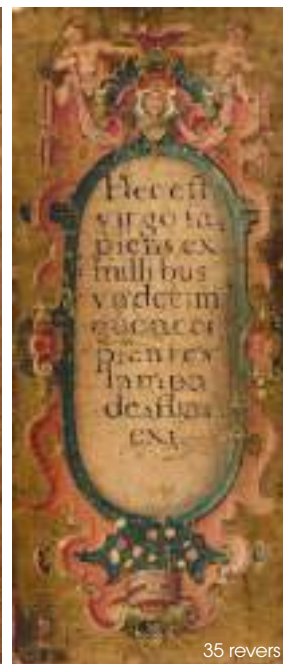 Hec est
virgo sa
piens ex
millibus
vndecim
que acci
pientes
lampa
des suas
exi.
35 revers